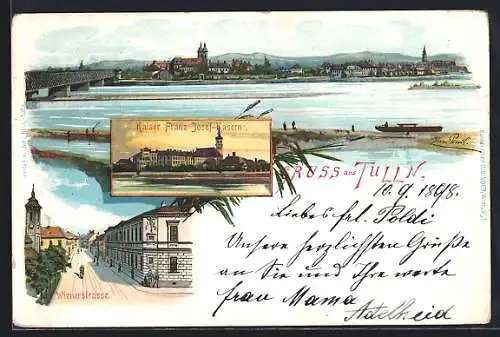 Kaiser Franz Josef-Kasern.
GRUSS aus TULLN.
10. 9. 1898.
Liebes Frl. Poldi
Unsere herzlichsten Grüße
an Sie und Ihre werte
Frau Mama
Adelheid
Wienerstrasse.